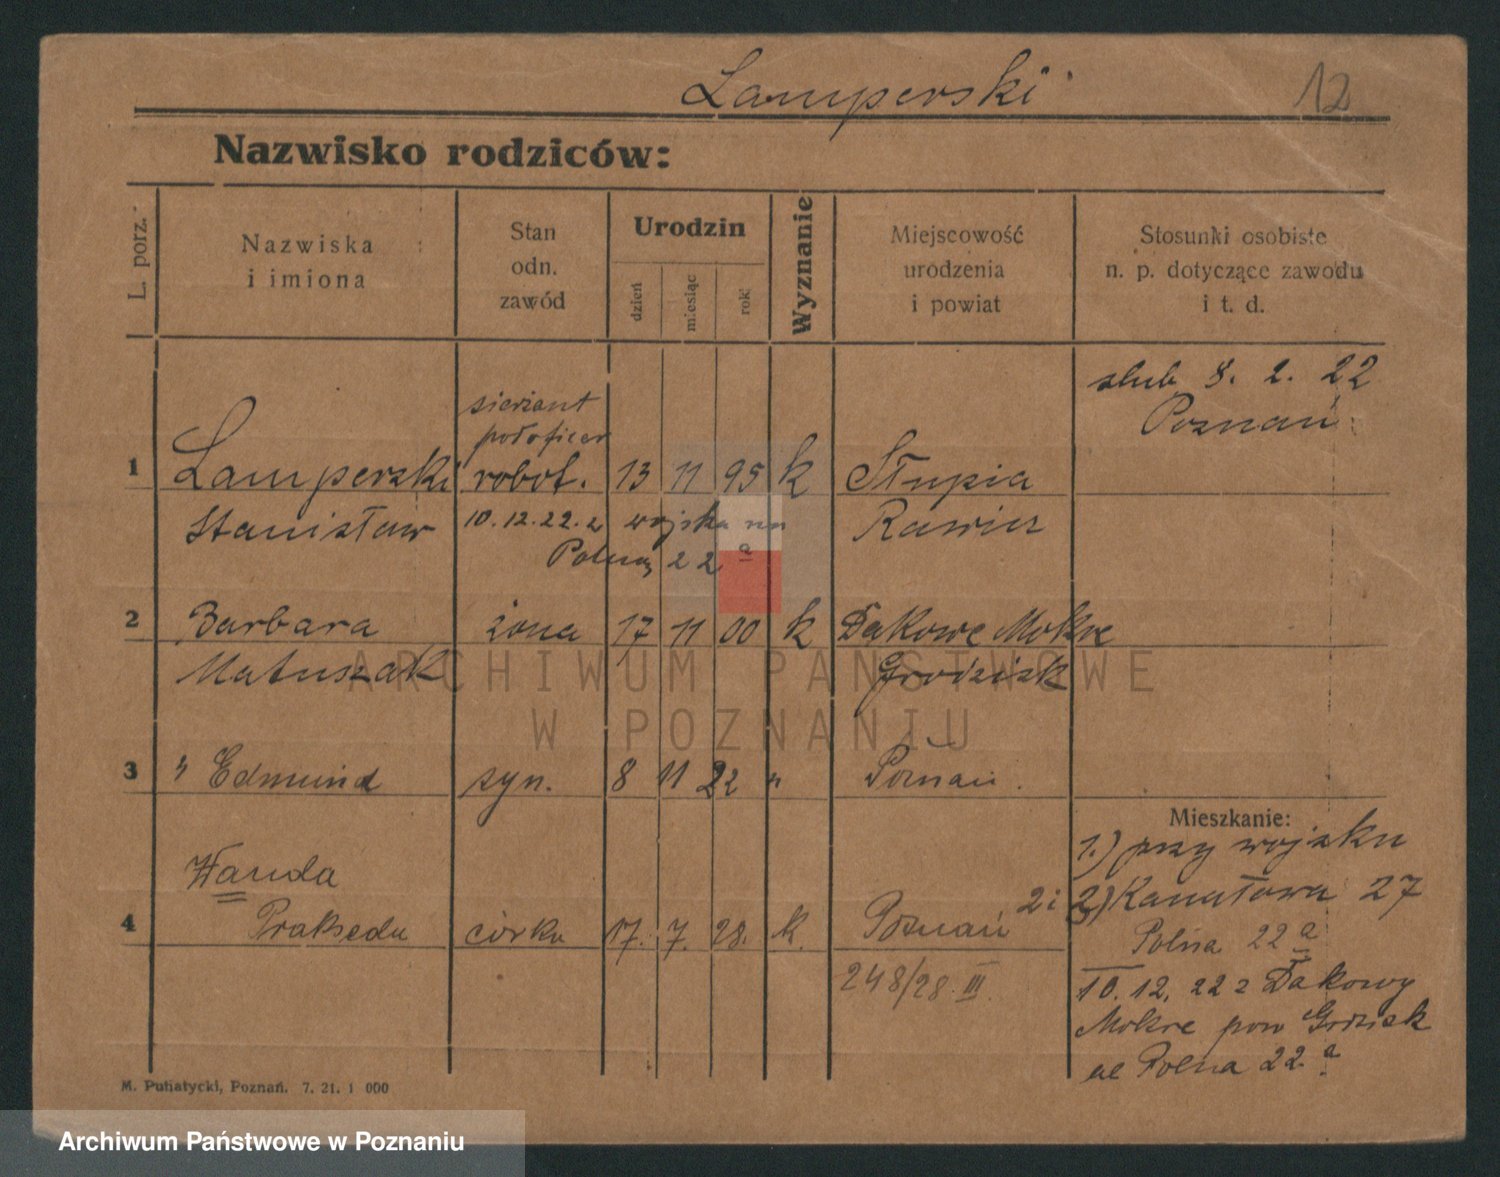 Lamperski
12
Nazwisko rodziców:
L. porz.
Nazwiska
i imiona
Stan
odn.
zawód
Urodzin
dzień
miesiąc
rok
Wyznanie
Miejscowość
urodzenia
i powiat
Stosunki osobiste
n. p. dotyczące zawodu
i t. d.
ślub 8. 2. 22
Poznań
sierżant
podoficer
1 Lamperski robot. 13 11 95 k Słupia
Stanisław 10.12.22. z wojska na Rawicz
Polną 22 a
2 Barbara żona 17 11 00 k Dakowe Mokre
Matuszak Grodzisk
3 " Edmund syn. 8 11 22 " Poznań
Mieszkanie:
1.) przy wojsku
Wanda
2) Kanałowa 27
4 Prakseda córka 17. 7. 28. k. Poznań
Polna 22 a
248/28. III.
10. 12. 22 z Dakowy
Mokre pow Grdzisk
ul Polna 22. a
M. Putiatycki, Poznań. 7. 21. 1 000
ARCHIWUM PAŃSTWOWE
W POZNANIU
Archiwum Państwowe w Poznaniu